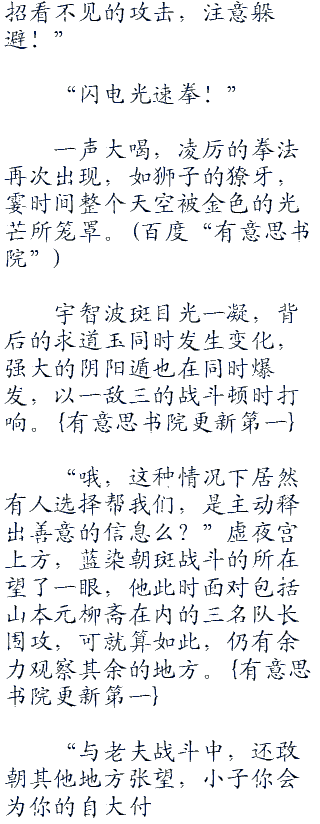 招看不见的攻击，注意躲
避！”
“闪电光速拳！”
一声大喝，凌厉的拳法
再次出现，如狮子的獠牙，
霎时间整个天空被金色的光
芒所笼罩。(百度“有意思书
院”)
宇智波斑目光一凝，背
后的求道玉同时发生变化，
强大的阴阳遁也在同时爆
发，以一敌三的战斗顿时打
响。{有意思书院更新第一}
“哦，这种情况下居然
有人选择帮我们，是主动释
出善意的信息么？”虚夜宫
上方，蓝染朝斑战斗的所在
望了一眼，他此时面对包括
山本元柳斋在内的三名队长
围攻，可就算如此，仍有余
力观察其余的地方。{有意思
书院更新第一}
“与老夫战斗中，还敢
朝其他地方张望，小子你会
为你的自大付